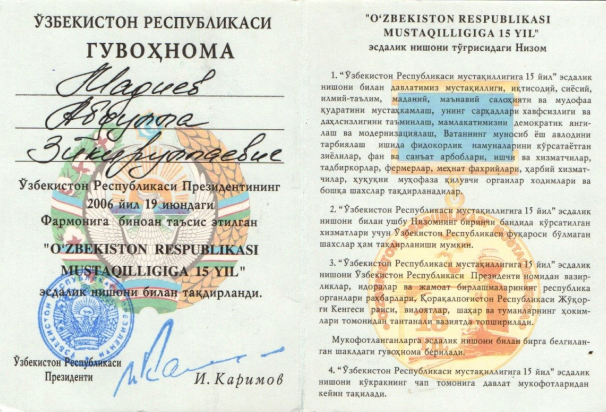 ЎЗБЕКИСТОН РЕСПУБЛИКАСИ
ГУВОҲНОМА
Мадиев
Абдулла
Ўзбекистон Республикаси Президентининг
2006 йил 19 июндаги
Фармонига биноан таъсис этилган
"O'ZBEKISTON RESPUBLIKASI
MUSTAQILLIGIGA 15 YIL"
эсдалик нишони билан тақдирланди.
Ўзбекистон Республикаси
Президенти
И. Каримов
"O'ZBEKISTON RESPUBLIKASI
MUSTAQILLIGIGA 15 YIL"
эсдалик нишони тўғрисидаги Низом
1. "Ўзбекистон Республикаси мустақиллигига 15 йил" эсдалик
нишони билан давлатимиз мустақиллиги, иқтисодий, сиёсий,
илмий-таълим, маданий, маънавий салоҳияти ва мудофаа
қудратини мустаҳкамлаш, унинг сарҳадлари хавфсизлиги ва
дахлсизлигини таъминлаш, мамлакатимизни демократик янги-
лаш ва модернизациялаш, Ватаннинг муносиб ёш авлодини
тарбиялаш ишида фидокорлик намуналарини кўрсатаётган
зиёлилар, фан ва санъат арбоблари, ишчи ва хизматчилар,
тадбиркорлар, фермерлар, меҳнат фахрийлари, ҳарбий хизмат-
чилар, ҳуқуқни муҳофаза қилувчи органлар ходимлари ва
бошқа шахслар тақдирланадилар.
2. "Ўзбекистон Республикаси мустақиллигига 15 йил" эсдалик
нишони билан ушбу Низомнинг биринчи бандида кўрсатилган
хизматлари учун Ўзбекистон Республикаси фуқароси бўлмаган
шахслар ҳам тақдирланиши мумкин.
3. "Ўзбекистон Республикаси мустақиллигига 15 йил" эсдалик
нишони Ўзбекистон Республикаси Президенти номидан вазир-
ликлар, идоралар ва жамоат бирлашмаларининг республика
органлари раҳбарлари, Қорақалпоғистон Республикаси Жўқор-
ғи Кенгеси раиси, вилоятлар, шаҳар ва туманларнинг ҳоким-
лари томонидан тантанали вазиятда топширилади.
Мукофотланганларга эсдалик нишони билан бирга белгилан-
ган шаклдаги гувоҳнома берилади.
4. "Ўзбекистон Республикаси мустақиллигига 15 йил" эсдалик
нишони кўкракнинг чап томонига давлат мукофотларидан
кейин тақилади.